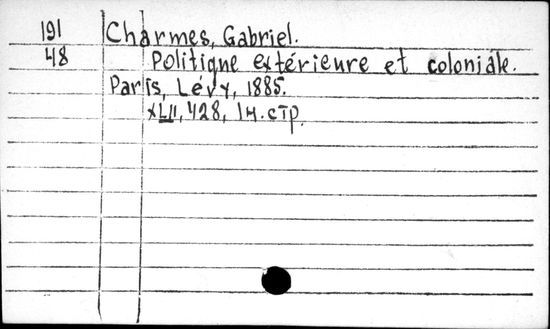 191 Charmes, Gabriel.
48 Politique extérieure et coloniale.
Paris, Lévy, 1885.
XLII, 428, 1 н. стр.